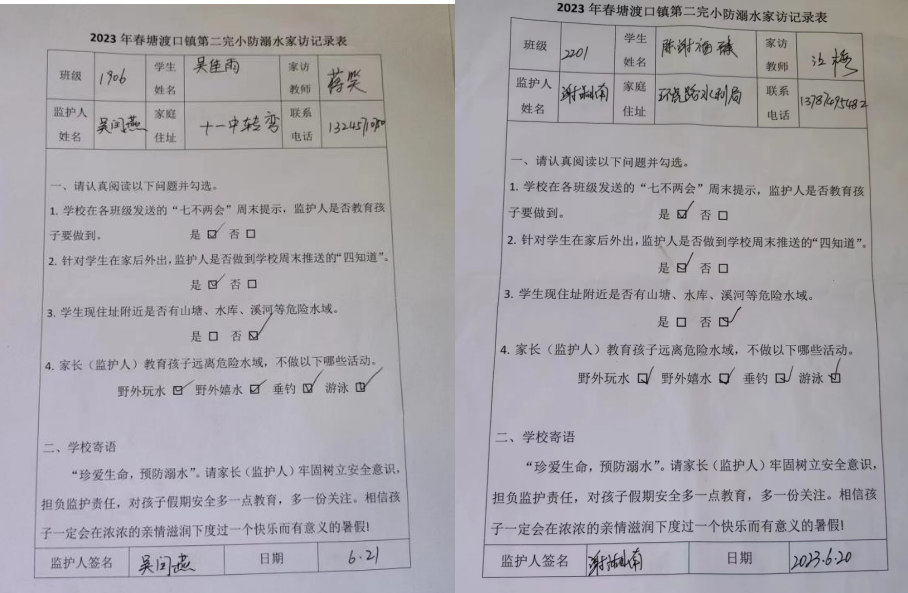 2023 年春塘渡口镇第二完小防溺水家访记录表
班级 1906 学生姓名 吴佳雨 家访教师 蒋笑
监护人姓名 吴闰燕 家庭住址 十一中转弯 联系电话
一、请认真阅读以下问题并勾选。
1. 学校在各班级发送的“七不两会”周末提示，监护人是否教育孩
子要做到。 是 ☑ 否 □
2. 针对学生在家后外出，监护人是否做到学校周末推送的“四知道”。
是 ☑ 否 □
3. 学生现住址附近是否有山塘、水库、溪河等危险水域。
是 □ 否 ☑
4. 家长（监护人）教育孩子远离危险水域，不做以下哪些活动。
野外玩水 ☑ 野外嬉水 ☑ 垂钓 ☑ 游泳 ☑
二、学校寄语
“珍爱生命，预防溺水”。请家长（监护人）牢固树立安全意识，
担负监护责任，对孩子假期安全多一点教育，多一份关注。相信孩
子一定会在浓浓的亲情滋润下度过一个快乐而有意义的暑假!
监护人签名 吴闰燕 日期 6.21
2023 年春塘渡口镇第二完小防溺水家访记录表
班级 2201 学生姓名 陈谢 家访教师
监护人姓名 谢湘南 家庭住址 环城路水利局 联系电话 13787495482
一、请认真阅读以下问题并勾选。
1. 学校在各班级发送的“七不两会”周末提示，监护人是否教育孩
子要做到。 是 ☑ 否 □
2. 针对学生在家后外出，监护人是否做到学校周末推送的“四知道”。
是 ☑ 否 □
3. 学生现住址附近是否有山塘、水库、溪河等危险水域。
是 □ 否 ☑
4. 家长（监护人）教育孩子远离危险水域，不做以下哪些活动。
野外玩水 ☑ 野外嬉水 ☑ 垂钓 ☑ 游泳 ☑
二、学校寄语
“珍爱生命，预防溺水”。请家长（监护人）牢固树立安全意识，
担负监护责任，对孩子假期安全多一点教育，多一份关注。相信孩
子一定会在浓浓的亲情滋润下度过一个快乐而有意义的暑假!
监护人签名 谢湘南 日期 2023.6.20